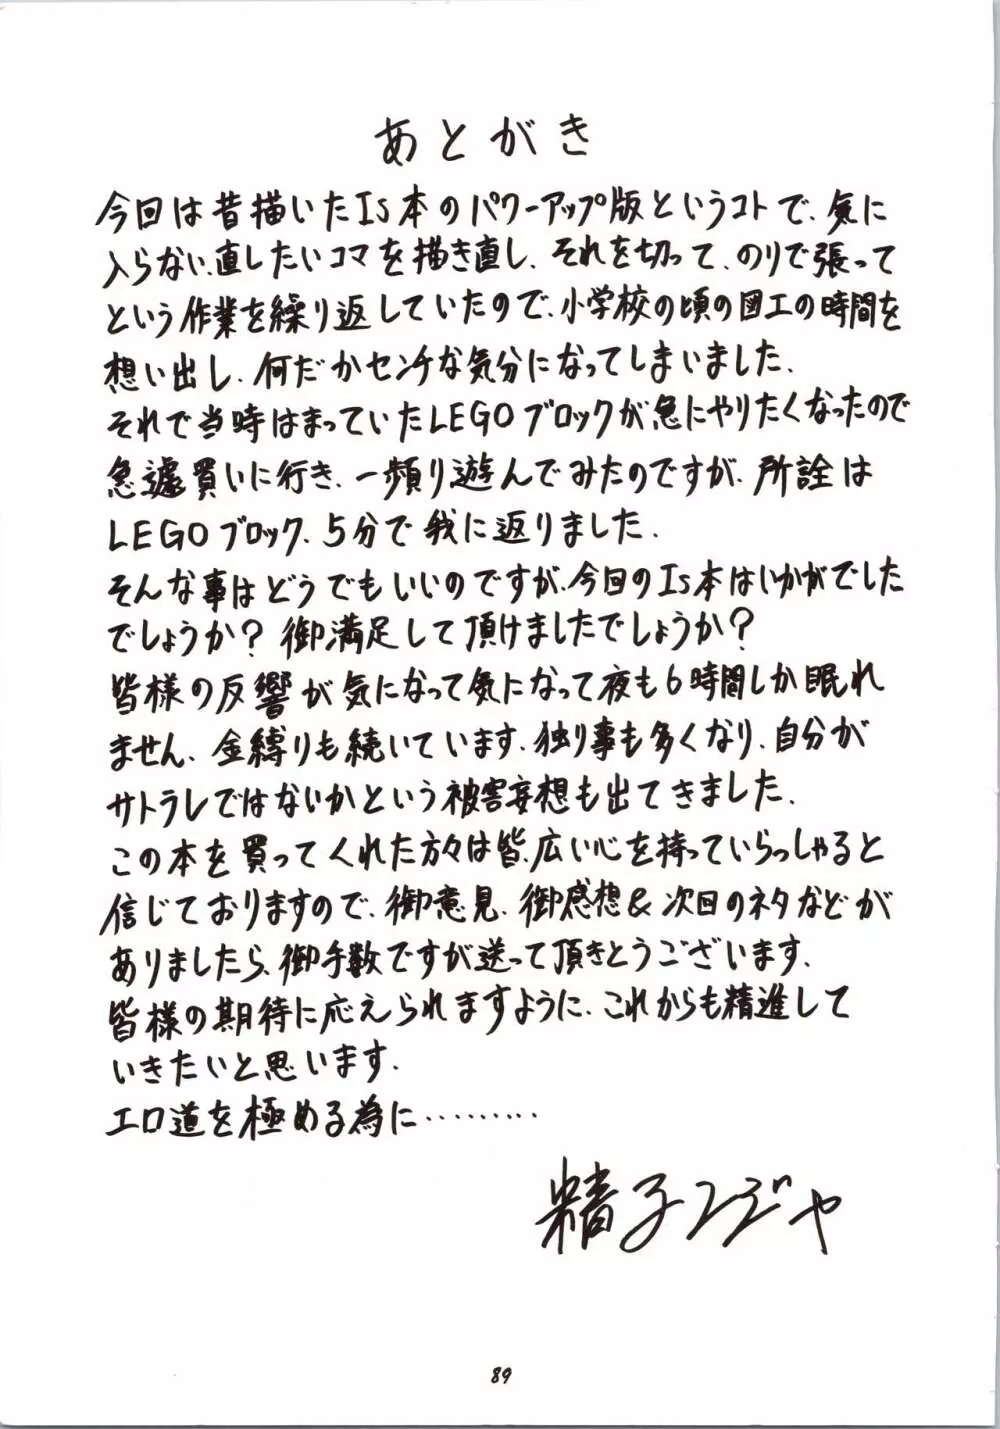 あとがき
今回は昔描いたIs本のパワーアップ版というコトで、気に
入らない、直したいコマを描き直し、それを切って、のりで張って
という作業を繰り返していたので、小学校の頃の図工の時間を
想い出し、何だかセンチな気分になってしまいました。
それで当時はまっていたLEGOブロックが急にやりたくなったので
急遽買いに行き、一頻り遊んでみたのですが、所詮は
LEGOブロック、5分で我に返りました。
そんな事はどうでもいいのですが、今回のIs本はいかがでした
でしょうか?御満足して頂けましたでしょうか?
皆様の反響が気になって気になって夜も6時間しか眠れ
ません、金縛りも続いています、独り事も多くなり、自分が
サトラレではないかという被害妄想も出てきました、
この本を買ってくれた方々は皆、広い心を持っていらっしゃると
信じておりますので、御意見、御感想&次回のネタなどが
ありましたら、御手数ですが送って頂きとうございます、
皆様の期待に応えられますように、これからも精進して
いきたいと思います、
エロ道を極める為に………
精子ンジャ
89